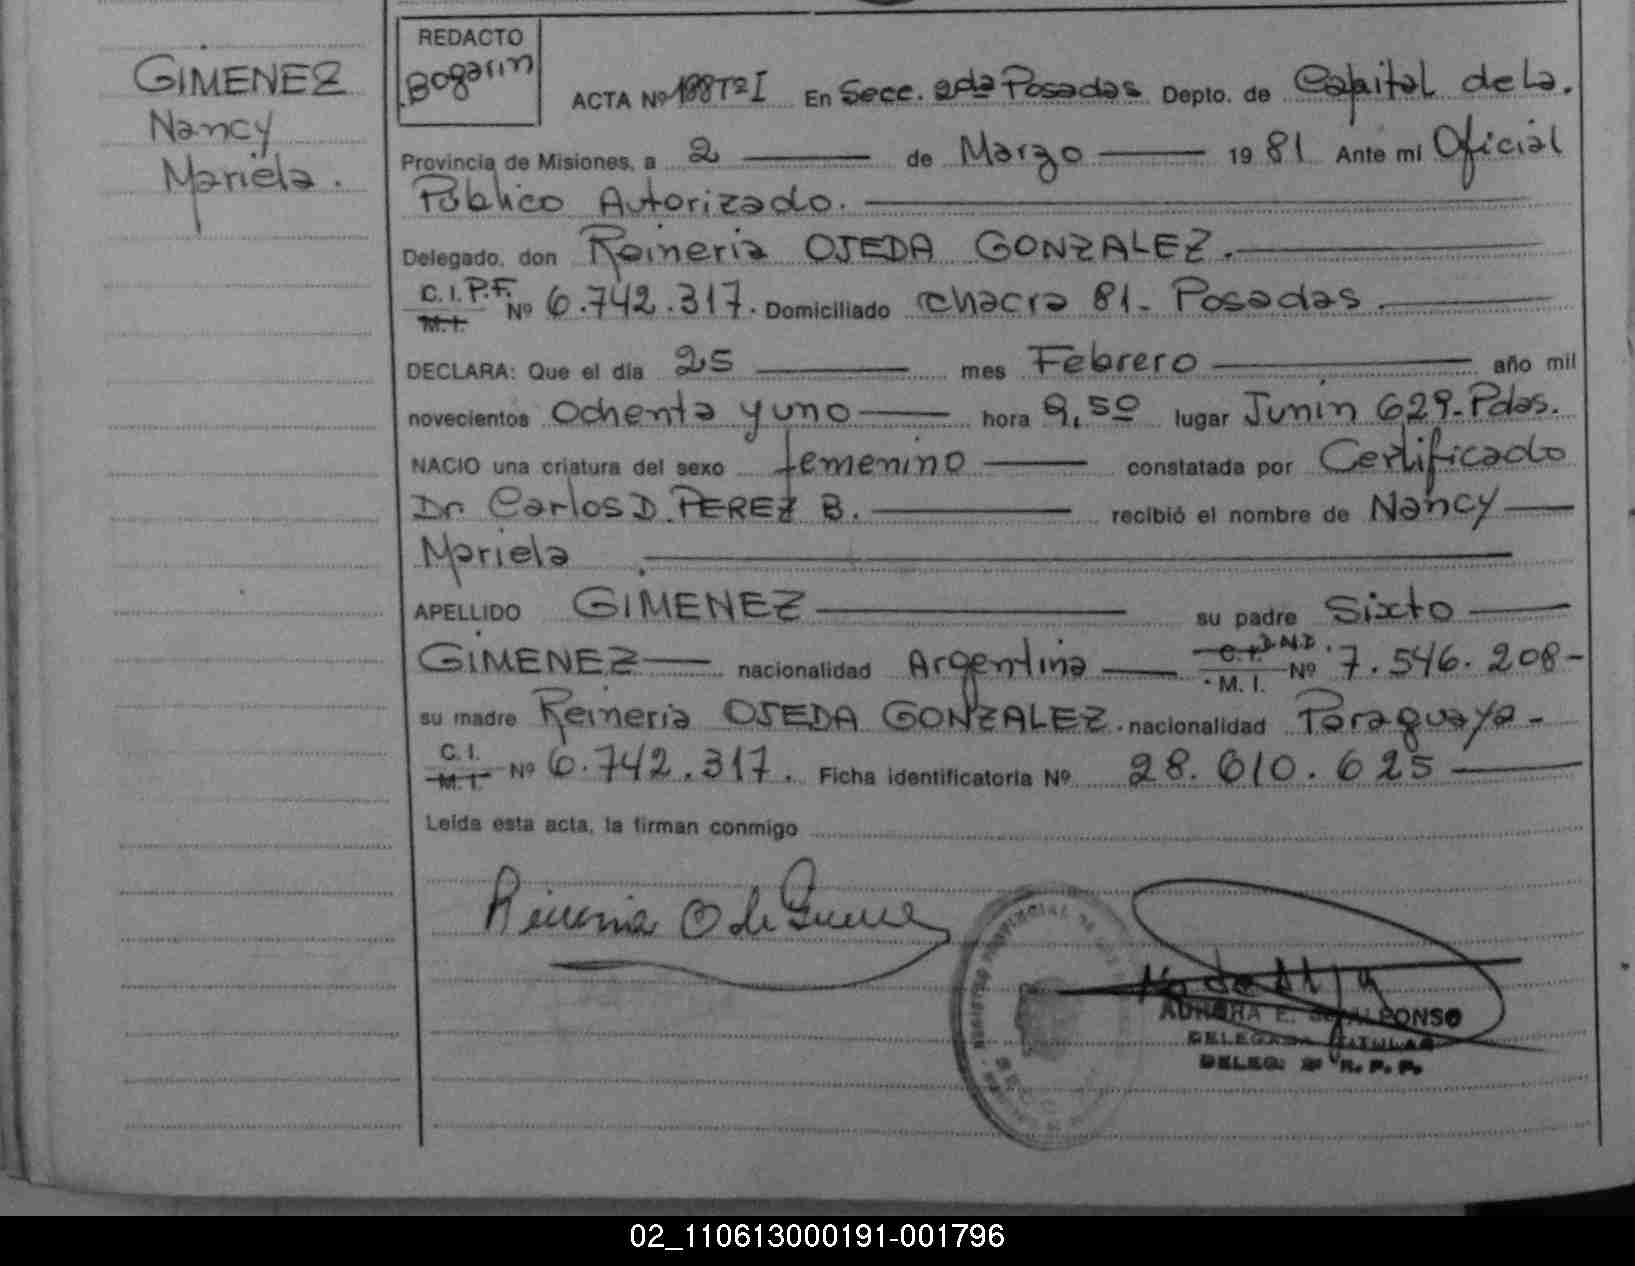 GIMENEZ
Nancy
Mariela.
REDACTO
Bogarin
ACTA Nº 188 Tº I En Secc. 2da Posadas Depto. de Capital de la.
Provincia de Misiones, a 2 de Marzo 19 81 Ante mi Oficial
Público Autorizado.
Delegado, don Reineria OJEDA GONZALEZ.
C.I.P.F.
M.I. Nº 6.742.317. Domiciliado chacra 81- Posadas.
DECLARA: Que el día 25 mes Febrero año mil
novecientos ochenta y uno hora 9,50 lugar Junin 629-Pdas.
NACIO una criatura del sexo femenino constatada por Certificado
Dr Carlos D. PEREZ B. recibió el nombre de Nancy
Mariela
APELLIDO GIMENEZ su padre Sixto
GIMENEZ nacionalidad Argentina C.I. D.N.I. Nº 7.546.208-
M.I.
su madre Reineria OJEDA GONZALEZ. nacionalidad Paraguaya-
C.I.
M.I. Nº 6.742.317. Ficha identificatoria Nº 28.610.625
Leída esta acta, la firman conmigo
Reineria O de
REGISTRO PROVINCIAL DE
AURORA E. DE ALFONSO
DELEGADA TITULAR
DELEG. 2ª R.P.P.
02_110613000191-001796